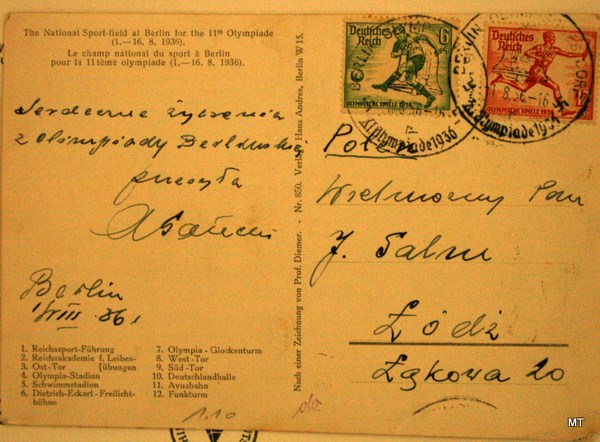 The National Sport-field at Berlin for the 11th Olympiade
(1.—16. 8. 1936).
Le champ national du sport à Berlin
pour la 11tème olympiade (1.—16. 8. 1936).
Serdeczne życzenia
z Olimpiady Berlińskiej
przesyła
Berlin
1/VIII. 36.
1. Reichssport-Führung
2. Reichsakademie f. Leibes-
3. Ost-Tor [übungen
4. Olympia-Stadion
5. Schwimmstadion
6. Dietrich-Eckart-Freilicht-
bühne
7. Olympia-Glockenturm
8. West-Tor
9. Süd-Tor
10. Deutschlandhalle
11. Avusbahn
12. Funkturm
Nach einer Zeichnung von Prof. Diemer. - Nr. 850. Verlag Hans Andres, Berlin W 15.
Deutsches
Reich
6
OLYMPISCHE SPIELE 1936
Deutsches
Reich
OLYMPISCHE SPIELE 1936
BERLIN
XI. Olympiade 1936
BERLIN
1.8.36-16
XI. Olympiade 1936
Wielmożny Pan
J. Salm
Łódź
Łąkowa 20
1.10
MT